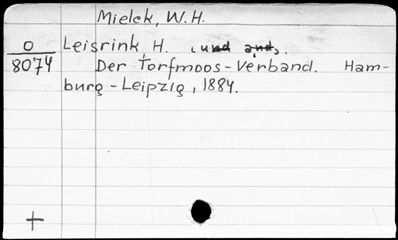 Mielck, W. H.
O Leisrink, H. , und and.
8074 Der Torfmoos-Verband. Ham-
burg-Leipzig, 1884.
+